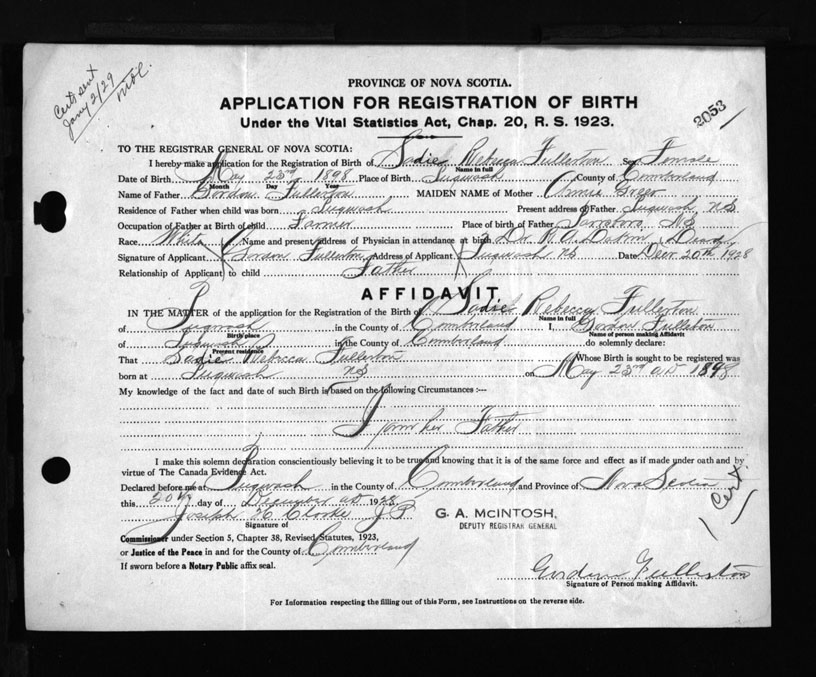 Cert sent
Jany 2/29
PROVINCE OF NOVA SCOTIA.
APPLICATION FOR REGISTRATION OF BIRTH
Under the Vital Statistics Act, Chap. 20, R. S. 1923.
2053
TO THE REGISTRAR GENERAL OF NOVA SCOTIA:
I hereby make application for the Registration of Birth of Sadie Rebecca Fullerton Sex Female
Name in full
Date of Birth May 23rd 1898 Place of Birth Pugwash County of Cumberland
Month Day Year
Name of Father Gordon Fullerton MAIDEN NAME of Mother Annie
Residence of Father when child was born Pugwash Present address of Father Pugwash NS
Occupation of Father at Birth of child Farmer Place of birth of Father Parrsboro NS
Race White Name and present address of Physician in attendance at birth Dr. Dead
Signature of Applicant Gordon Fullerton Address of Applicant Pugwash NS Date Decr 20th 1928
Relationship of Applicant to child Father
AFFIDAVIT.
IN THE MATTER of the application for the Registration of the Birth of Sadie Rebecca Fullerton
Name in full
of Pugwash in the County of Cumberland I, Gordon Fullerton
Birth place Name of person making Affidavit
of Pugwash in the County of Cumberland do solemnly declare:
Present residence
That Sadie Rebecca Fullerton Whose Birth is sought to be registered was
born at Pugwash NS on May 23rd AD 1898
My knowledge of the fact and date of such Birth is based on the following Circumstances :—
I am her Father
I make this solemn declaration conscientiously believing it to be true and knowing that it is of the same force and effect as if made under oath and by
virtue of The Canada Evidence Act.
Declared before me at Pugwash in the County of Cumberland and Province of Nova Scotia
this 20th day of December AD 1928
(Cert.)
Joseph H Clarke J P
Signature of
G. A. McINTOSH,
DEPUTY REGISTRAR GENERAL
Commissioner under Section 5, Chapter 38, Revised Statutes, 1923,
or Justice of the Peace in and for the County of Cumberland
If sworn before a Notary Public affix seal.
Gordon Fullerton
Signature of Person making Affidavit.
For Information respecting the filling out of this Form, see Instructions on the reverse side.